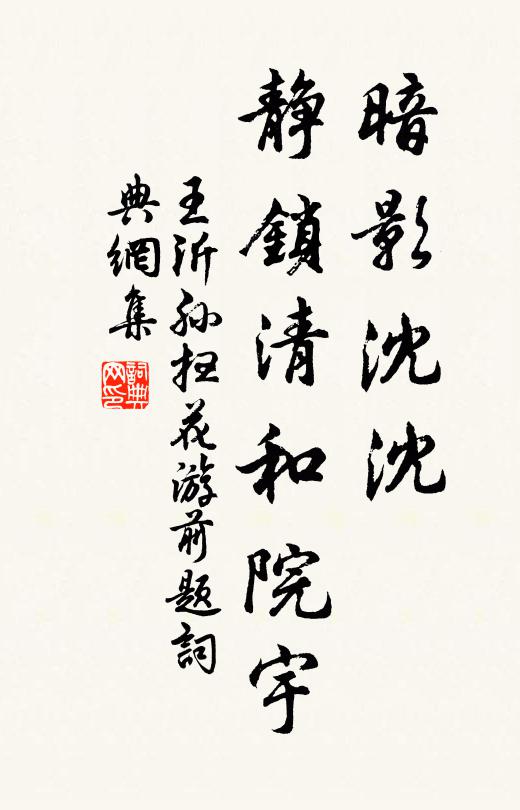 暗影沈沈
静鎖清和院宇
王沂孙扫花游前题詞
典網集
詞典网印